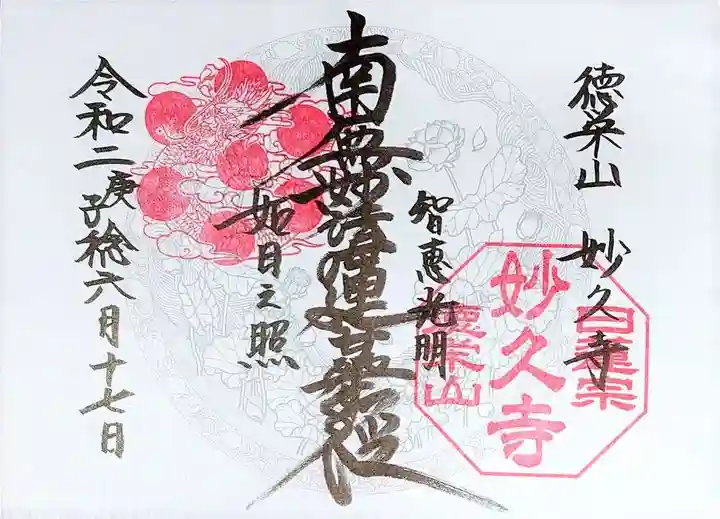 徳栄山 妙久寺
日蓮宗
妙久寺
徳栄山
智恵光明
南無妙法蓮華経
如日之照
令和二庚子稔六月十七日